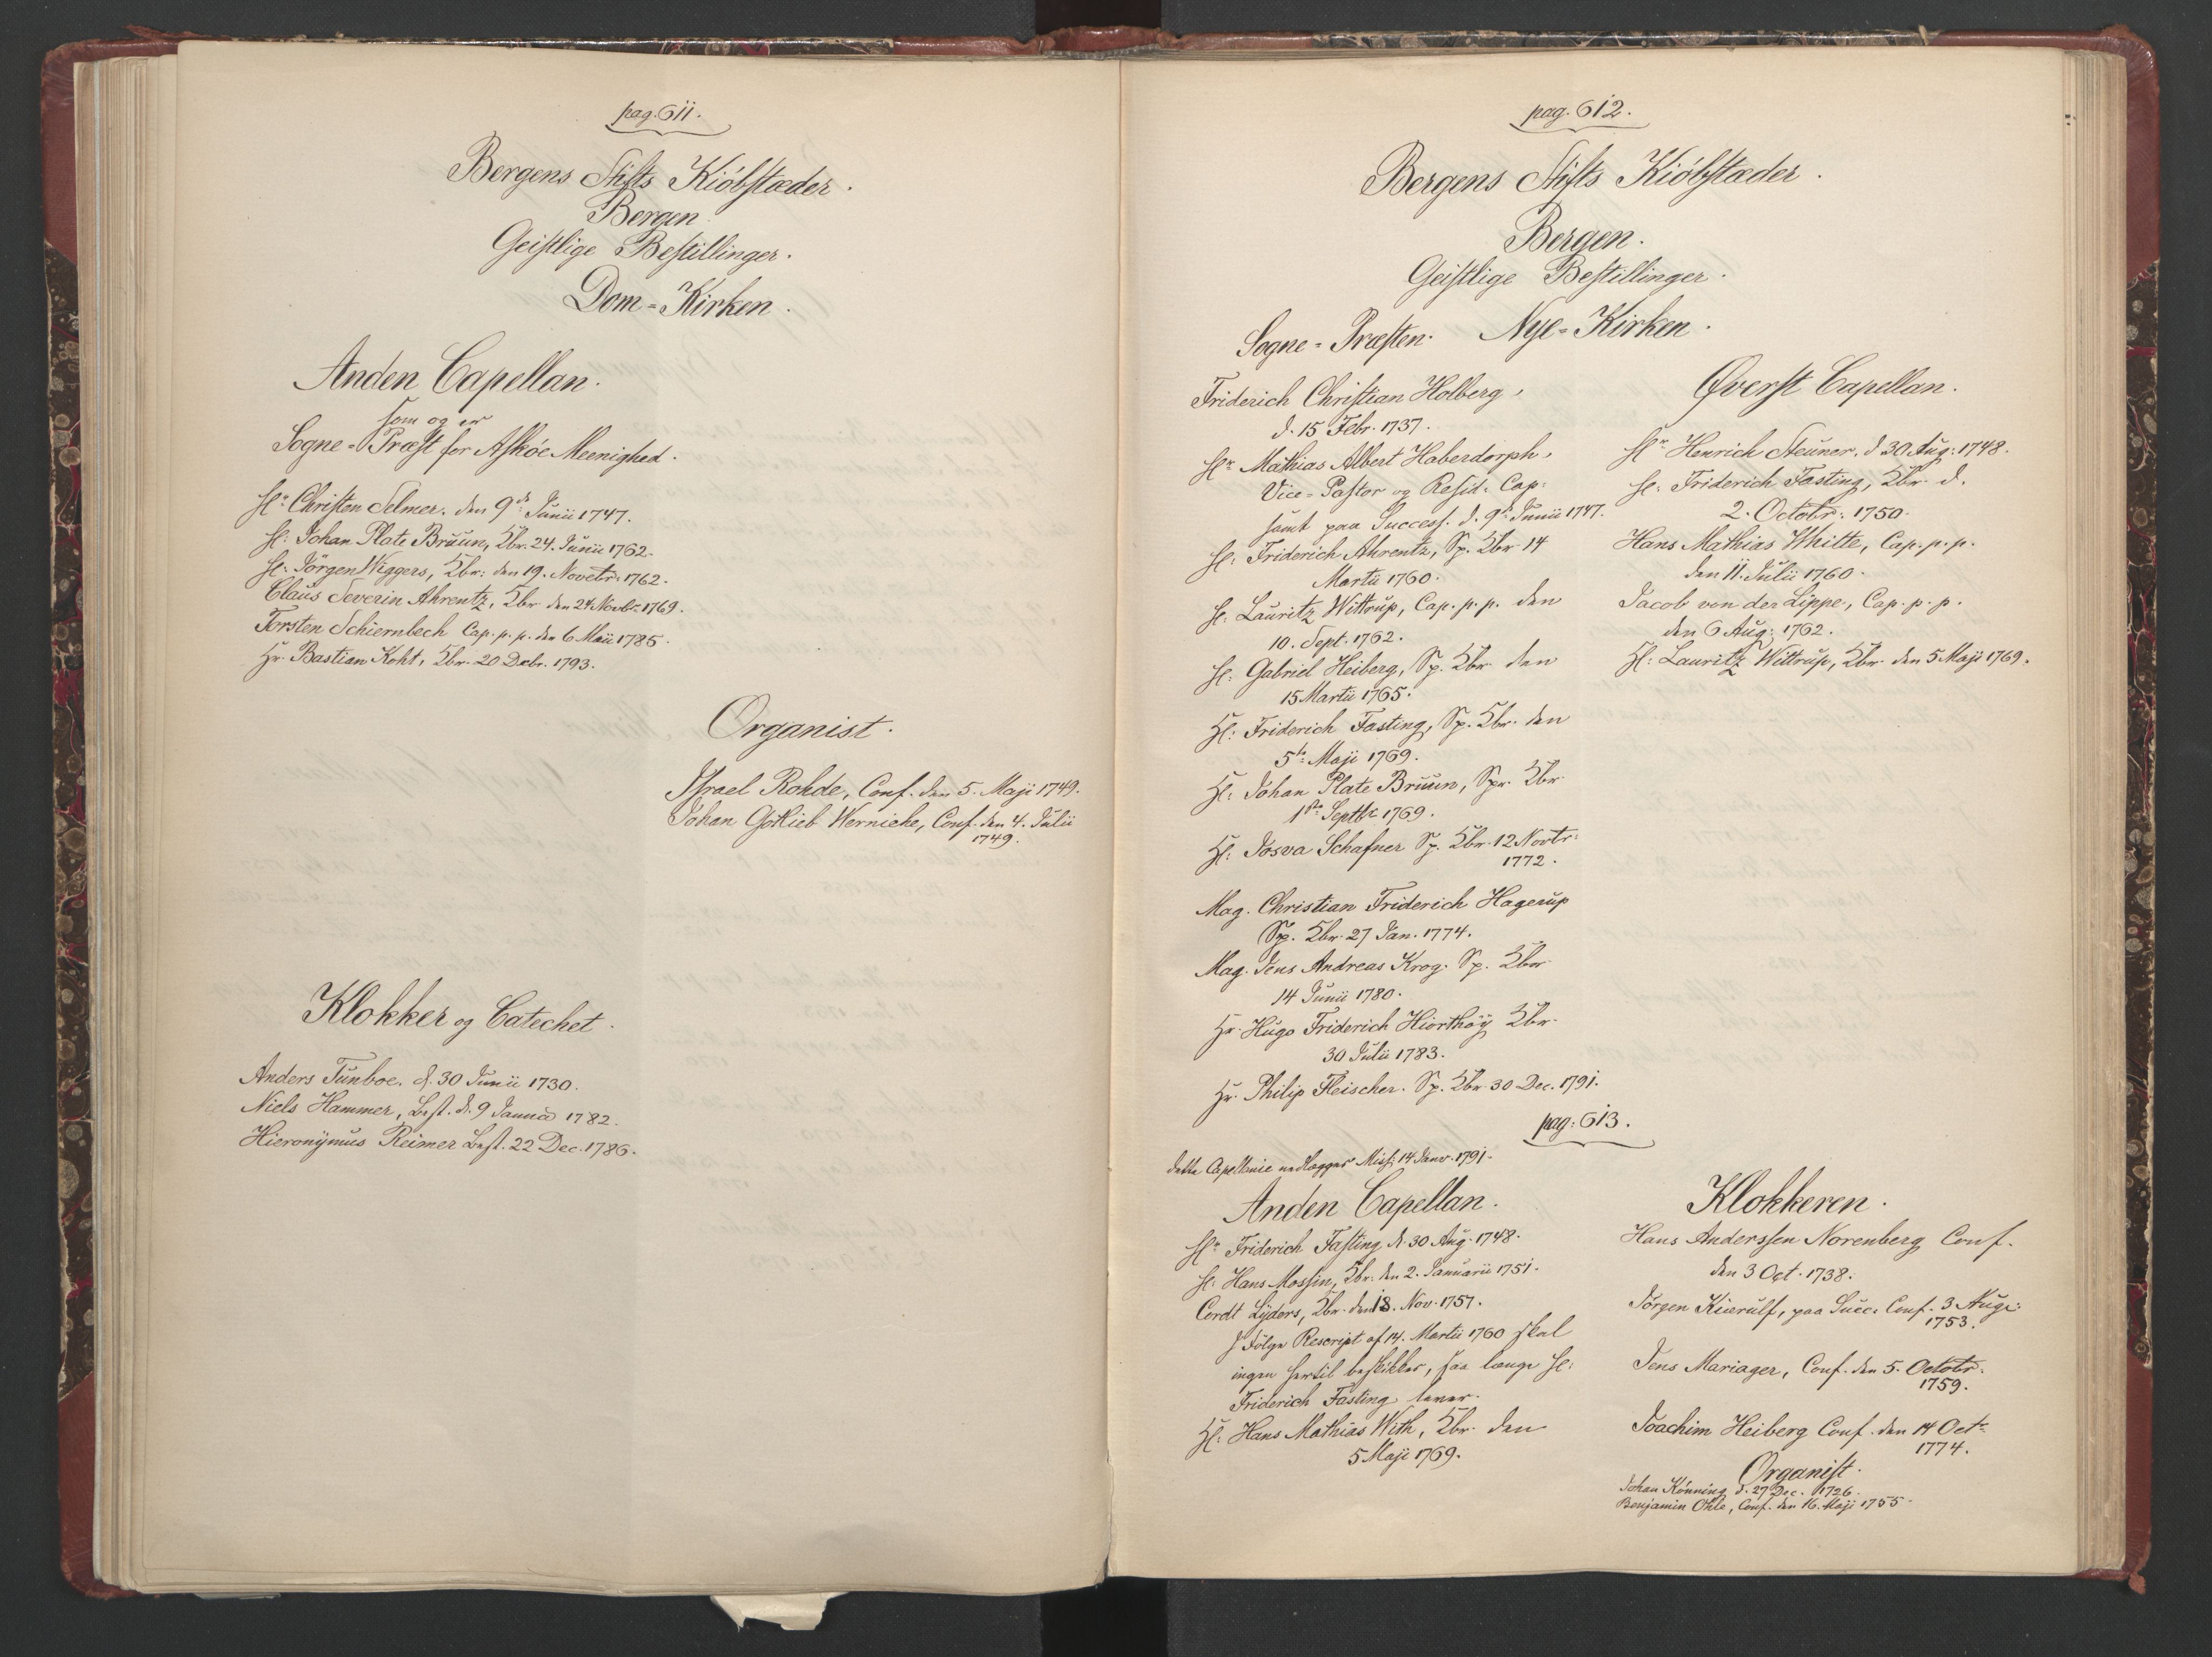 pag. 611.
Bergens Stifts Kiøbstæder.
Bergen
Geistlige Bestillinger.
Dom=Kirken.
Anden Capellan.
som og er
Sogne=Præst for Askøe Meenighed.
Hr. Christen Selmer, den 9de Junii 1747.
H: Johan Plate Bruun, Kbr. 24. Junii 1762.
H: Jörgen Wiggers, Kbr: den 19. Novebr: 1762.
Claus Severin Ahrentz, Kbr. den 24 Novbr. 1769.
Torsten Schiernbech Cap. p. p. den 6 Maii 1785.
Hr. Bastian Koht, Kbr. 20 Debr. 1793.
Organist.
Israel Rohde, Conf. den 5. Maji 1749.
Johan Gotlieb Wernicke, Conf. den 4. Julii
1749.
Klokker og Catechet.
Anders Tunboe. d. 30 Junii 1730.
Niels Hammer, Best. d. 9 Janua 1782.
Hieronÿmus Reimer Best. 22 Dec. 1786.
pag. 612.
Bergens Stifts Kiøbstæder.
Bergen.
Geistlige Bestillinger.
Nye=Kirken.
Sogne=Præsten.
Friderich Christian Holberg,
d. 15 Febr. 1737.
Hr. Mathias Albert Haberdorph,
Vice=Pastor og Resid: Cap:
samt paa Success. d. 9de Junii 1747.
H: Friderich Ahrentz, Sp. Kbr. 14
Martii 1760.
H: Lauritz Wittrup, Cap. p. p. den
10. Sept. 1762.
H: Gabriel Heiberg, Sp. Kbr. den
15 Martii 1765.
H: Friderich Fasting, Sp. Kbr. den
5te Maji 1769.
H: Johan Plate Bruun, Spr. Kbr.
1ste Septbr 1769.
H: Josva Schafner Sp. Kbr. 12 Novbr:
1772.
Mag. Christian Friderich Hagerup
Sp. Kbr. 27 Jan. 1774.
Mag. Jens Andreas Krog. Sp. Kbr.
14 Junii 1780.
Hr. Hugo Friderich Hiorthøÿ Kbr.
30 Julii 1783.
Hr. Philip Fleischer. Sp. Kbr. 30 Dec. 1791.
Øverst Capellan.
Hr. Henrich Steuner. d 30 Aug: 1748.
H: Friderich Fasting, Kbr. d.
2. Octobr: 1750.
Hans Mathias Whitte, Cap. p. p.
den 11. Julii 1760.
Jacob von der Lippe, Cap. p. p.
den 6 Aug: 1762.
H: Lauritz Wittrup, Kbr. den 5 Maji 1769.
pag: 613.
dette Capellanie nedlægges Miss: 14 Janv. 1791.
Anden Capellan.
Hr. Friderich Fasting d. 30 Aug. 1748.
H: Hans Mossin, Kbr. den 2. Januarii 1751.
Cordt Lÿders, Kbr. den 18. Nov. 1757.
I Følge Rescript af 14. Martii 1760 skal
ingen hertil beskikkes, saa længe H:
Friderich Fasting lever.
H: Hans Mathias With, Kbr. den
5 Maji 1769.
Klokkeren.
Hans Anderssen Norenberg Conf.
den 3 Oct. 1738.
Jörgen Kierulf, paa Succ: Conf. 3 Aug:
1753.
Jens Mariager, Conf. den 5. Octobr:
1759.
Joachim Heiberg Conf. den 14 Octr
1774.
Organist.
Johan Kønning d. 27 Dec. 1726.
Benjamin Ohle, Conf. den 16. Maji 1755.